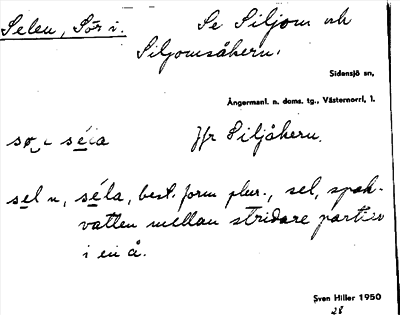 Selen, Sör i.
Se Siljom och
Siljomsåkern.
Sidensjö sn,
Ångermanl. n. doms. tg., Västernorrl. l.
sø i séla
Jfr Siljåkern.
sel n, séla, best. form plur., sel, spak-
vatten mellan stridare partier
i en å.
Sven Hiller 1950
28